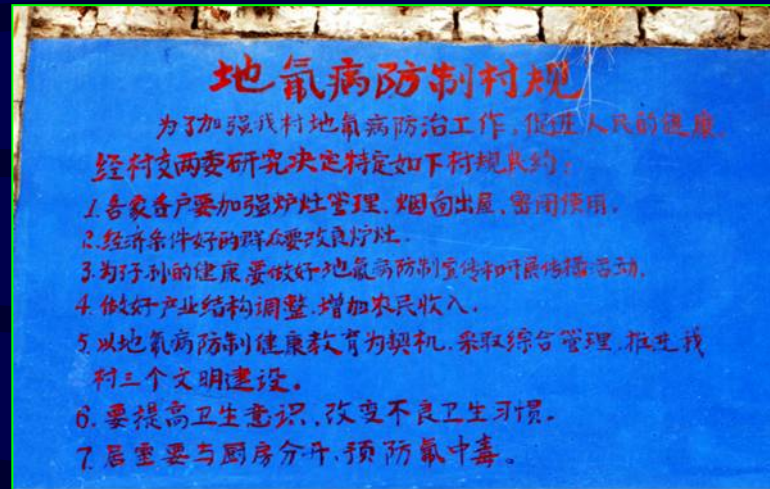 地氟病防制村规
为了加强我村地氟病防治工作,促进人民的健康,
经村支两委研究决定特定如下村规民约:
1.各家各户要加强炉灶管理.烟向出屋,密闭使用。
2.经济条件好的群众要改良炉灶.
3.为子孙的健康要做好地氟病防制宣传和开展传播活动.
4.做好产业结构调整.增加农民收入.
5.以地氟病防制健康教育为契机.采取综合管理.推进我
村三个文明建设。
6.要提高卫生意识,改变不良卫生习惯。
7.居室要与厨房分开,预防氟中毒。